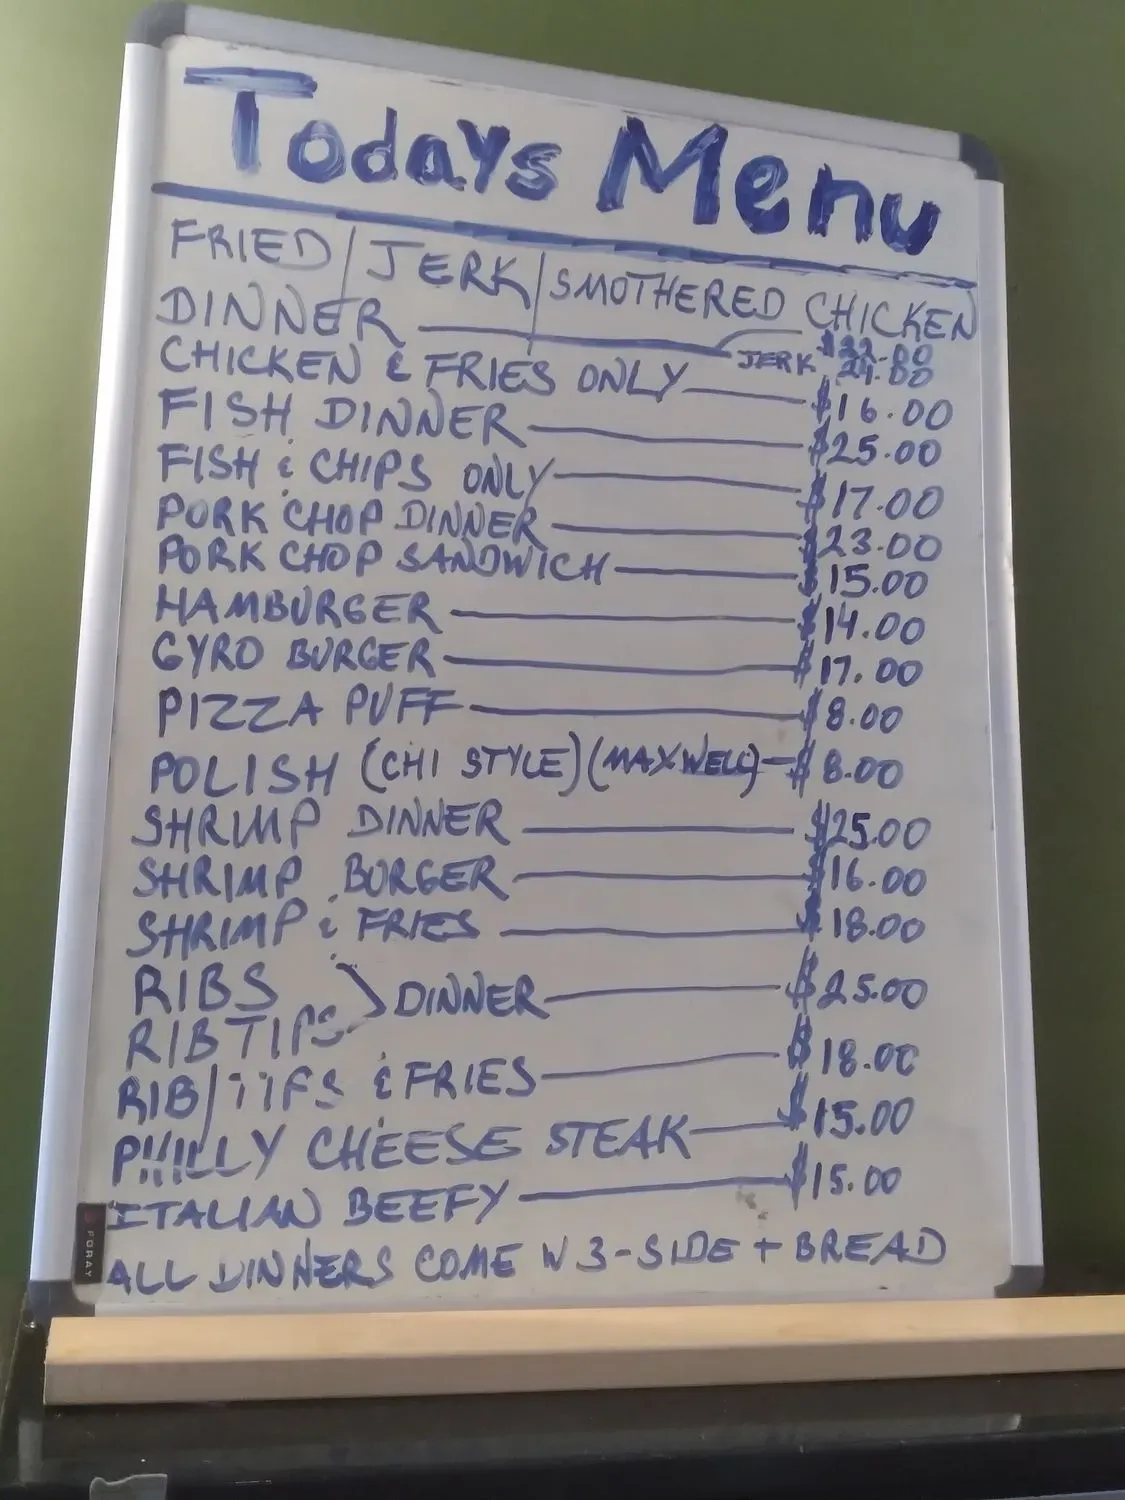 Todays Menu
FRIED / JERK / SMOTHERED CHICKEN
DINNER $22.00
JERK 24.00
CHICKEN & FRIES ONLY $16.00
FISH DINNER $25.00
FISH & CHIPS ONLY $17.00
PORK CHOP DINNER $23.00
PORK CHOP SANDWICH $15.00
HAMBURGER $14.00
GYRO BURGER $17.00
PIZZA PUFF $8.00
POLISH (CHI STYLE) (MAXWELL) $8.00
SHRIMP DINNER $25.00
SHRIMP BURGER $16.00
SHRIMP & FRIES $18.00
RIBS
RIB TIPS } DINNER $25.00
RIB/TIPS & FRIES $18.00
PHILLY CHEESE STEAK $15.00
ITALIAN BEEFY $15.00
ALL DINNERS COME W 3-SIDE + BREAD
FORAY